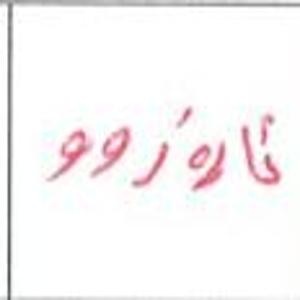 ئارەزوو